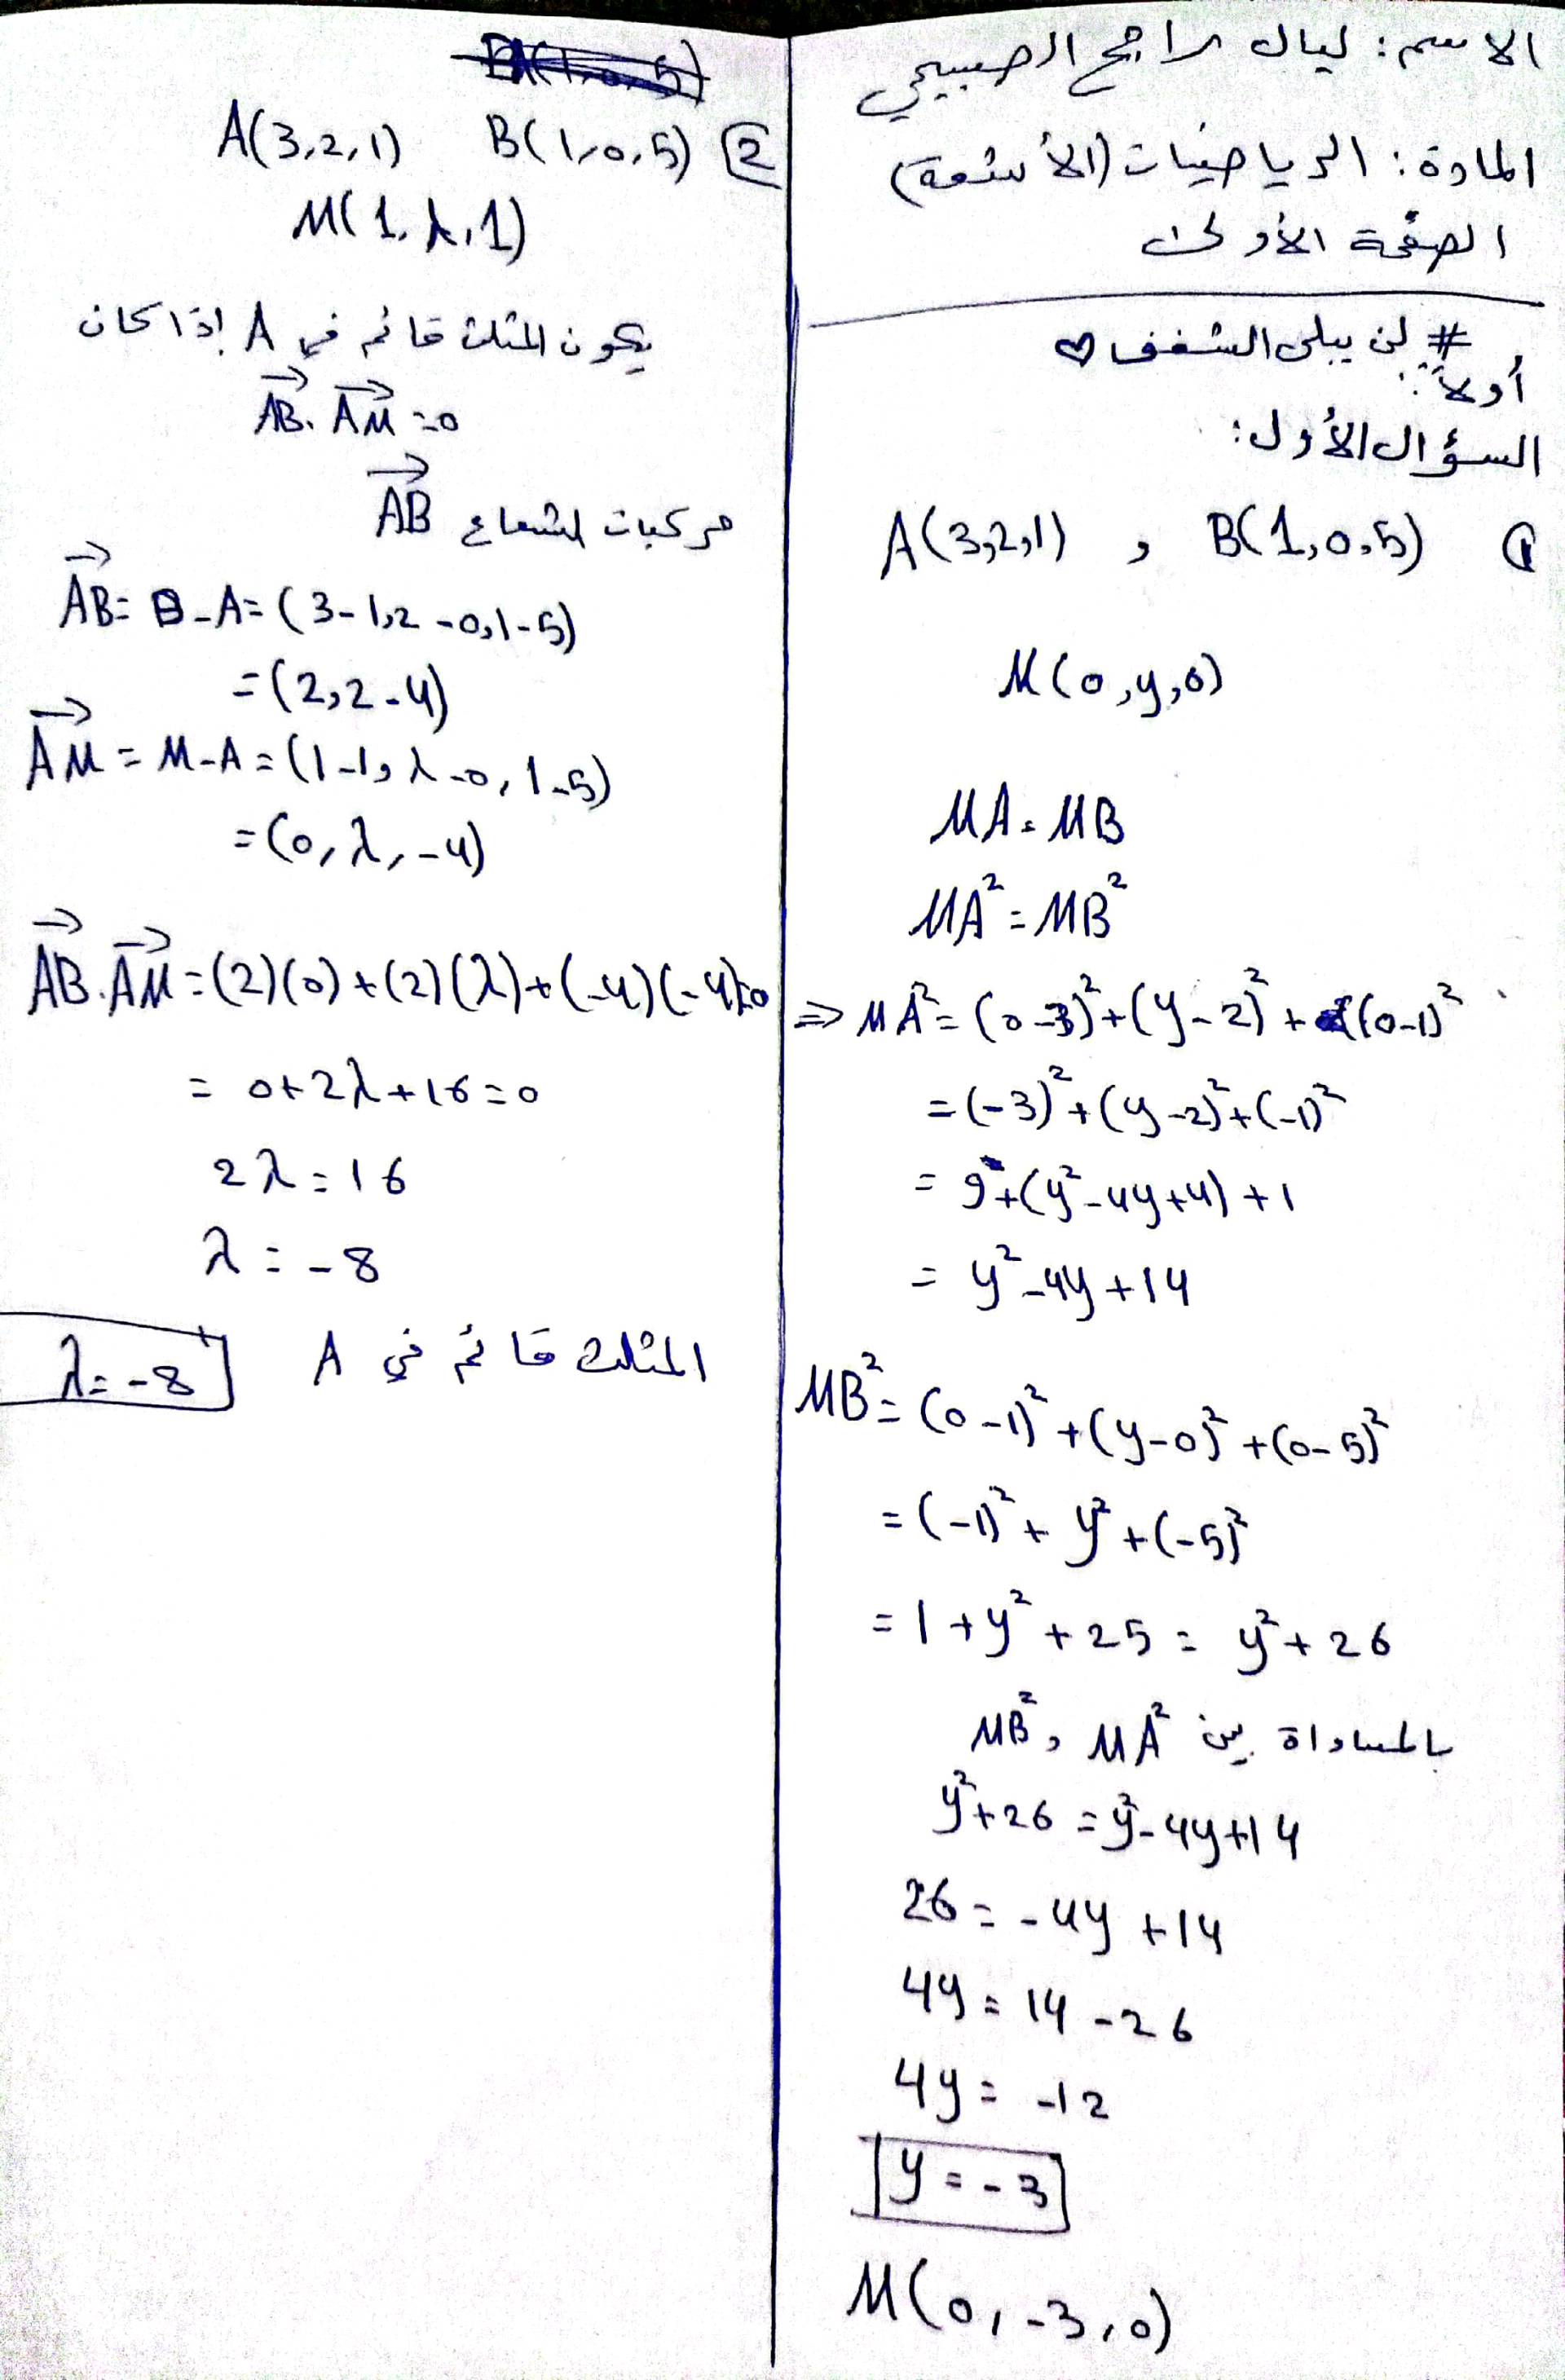 الاسم: ليال راجح الصبيحي
المادة: الرياضيات (الأشعة)
الصفحة الأولى
# لن يبلى الشغف ♡
أولاً:
السؤال الأول:
① A(3,2,1) , B(1,0,5)
M(0,y,0)
MA = MB
MA² = MB²
⇒ MA² = (0-3)² + (y-2)² + (0-1)²
= (-3)² + (y-2)² + (-1)²
= 9 + (y²-4y+4) + 1
= y²-4y+14
MB² = (0-1)² + (y-0)² + (0-5)²
= (-1)² + y² + (-5)²
= 1 + y² + 25 = y² + 26
بالمساواة بين MA² , MB²
y²+26 = y²-4y+14
26 = -4y +14
4y = 14 -26
4y = -12
y = -3
M(0, -3, 0)
② A(3,2,1) B(1,0,5)
M(1, λ, 1)
يكون المثلث قائم في A إذا كان
AB⃗ . AM⃗ = 0
مركبات الشعاع AB⃗
AB⃗ = B - A = (3-1, 2-0, 1-5)
= (2, 2 -4)
AM⃗ = M-A = (1-1, λ-0, 1-5)
= (0, λ, -4)
AB⃗ . AM⃗ = (2)(0) + (2)(λ) + (-4)(-4) = 0
= 0 + 2λ + 16 = 0
2λ = 16
λ = -8
المثلث قائم في A λ = -8